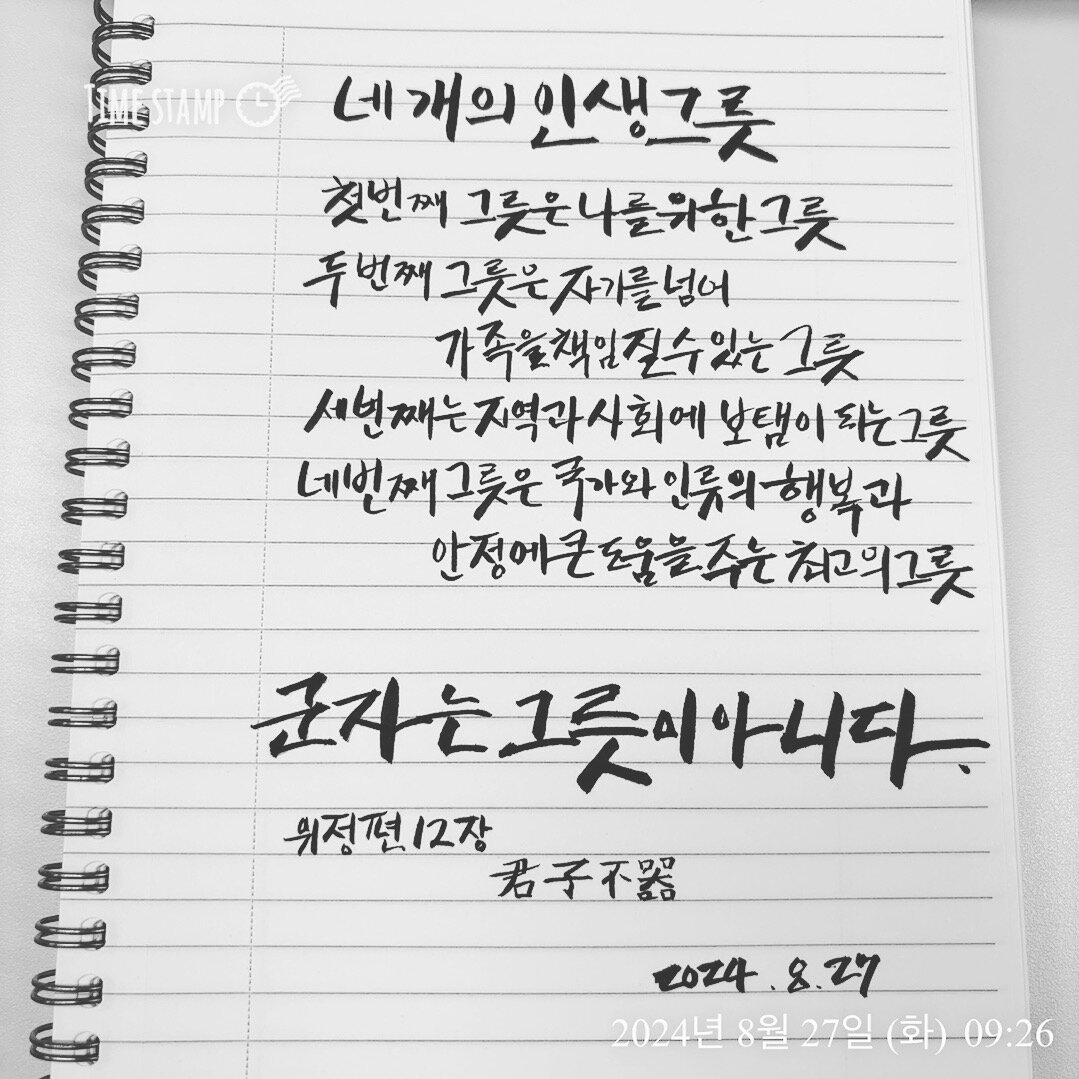 TIME STAMP
네 개의 인생그릇
첫번째 그릇은 나를 위한 그릇
두번째 그릇은 자기를 넘어
가족을 책임 질 수 있는 그릇
세번째는 지역과 사회에 보탬이 되는 그릇
네번째 그릇은 국가와 인류의 행복과
안정에 큰 도움을 주는 최고의 그릇
군자는 그릇이 아니다.
위정편 12장
君子不器
2024.8.27
2024년 8월 27일 (화) 09:26